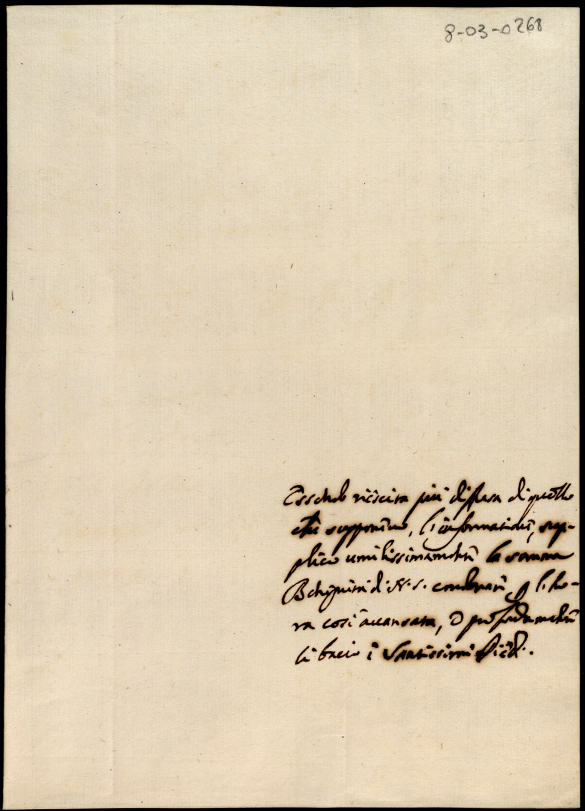 8-03-0268
Essendo riuscita più diffusa di quello
che supponevo, l'informatione, sup-
plico umilissimamente la somma
Benignità di N. S. condonarmi, l'ho-
ra così avanzata, e profondamente
li bacio i Santissimi Piedi.